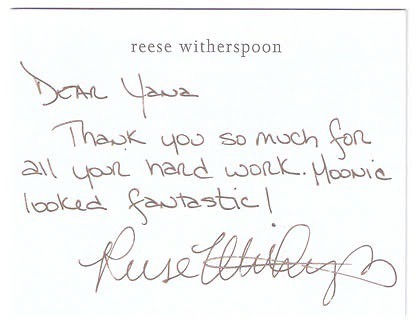 reese witherspoon
Dear Yana
Thank you so much for
all your hard work. Moonie
looked fantastic!
Reese Witherspoon